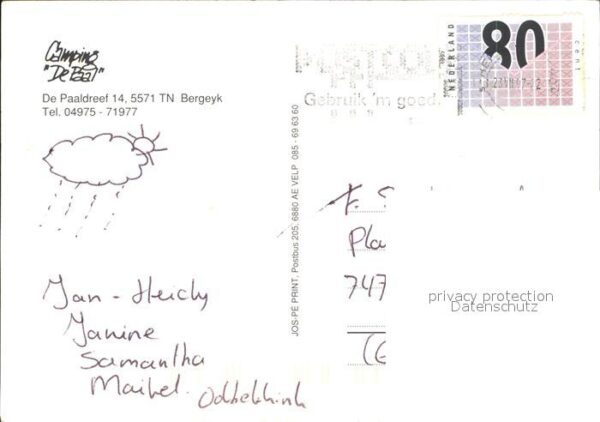 Camping
"De Paal"
De Paaldreef 14, 5571 TN Bergeyk
Tel. 04975 - 71977
NEDERLAND
80
cent
Gebruik 'm goed.
JOS-PÉ PRINT, Postbus 205, 6880 AE VELP 085 - 69 63 60
Pla
747
privacy protection
Datenschutz
Jan - Heidy
Janine
Samantha
Maibel